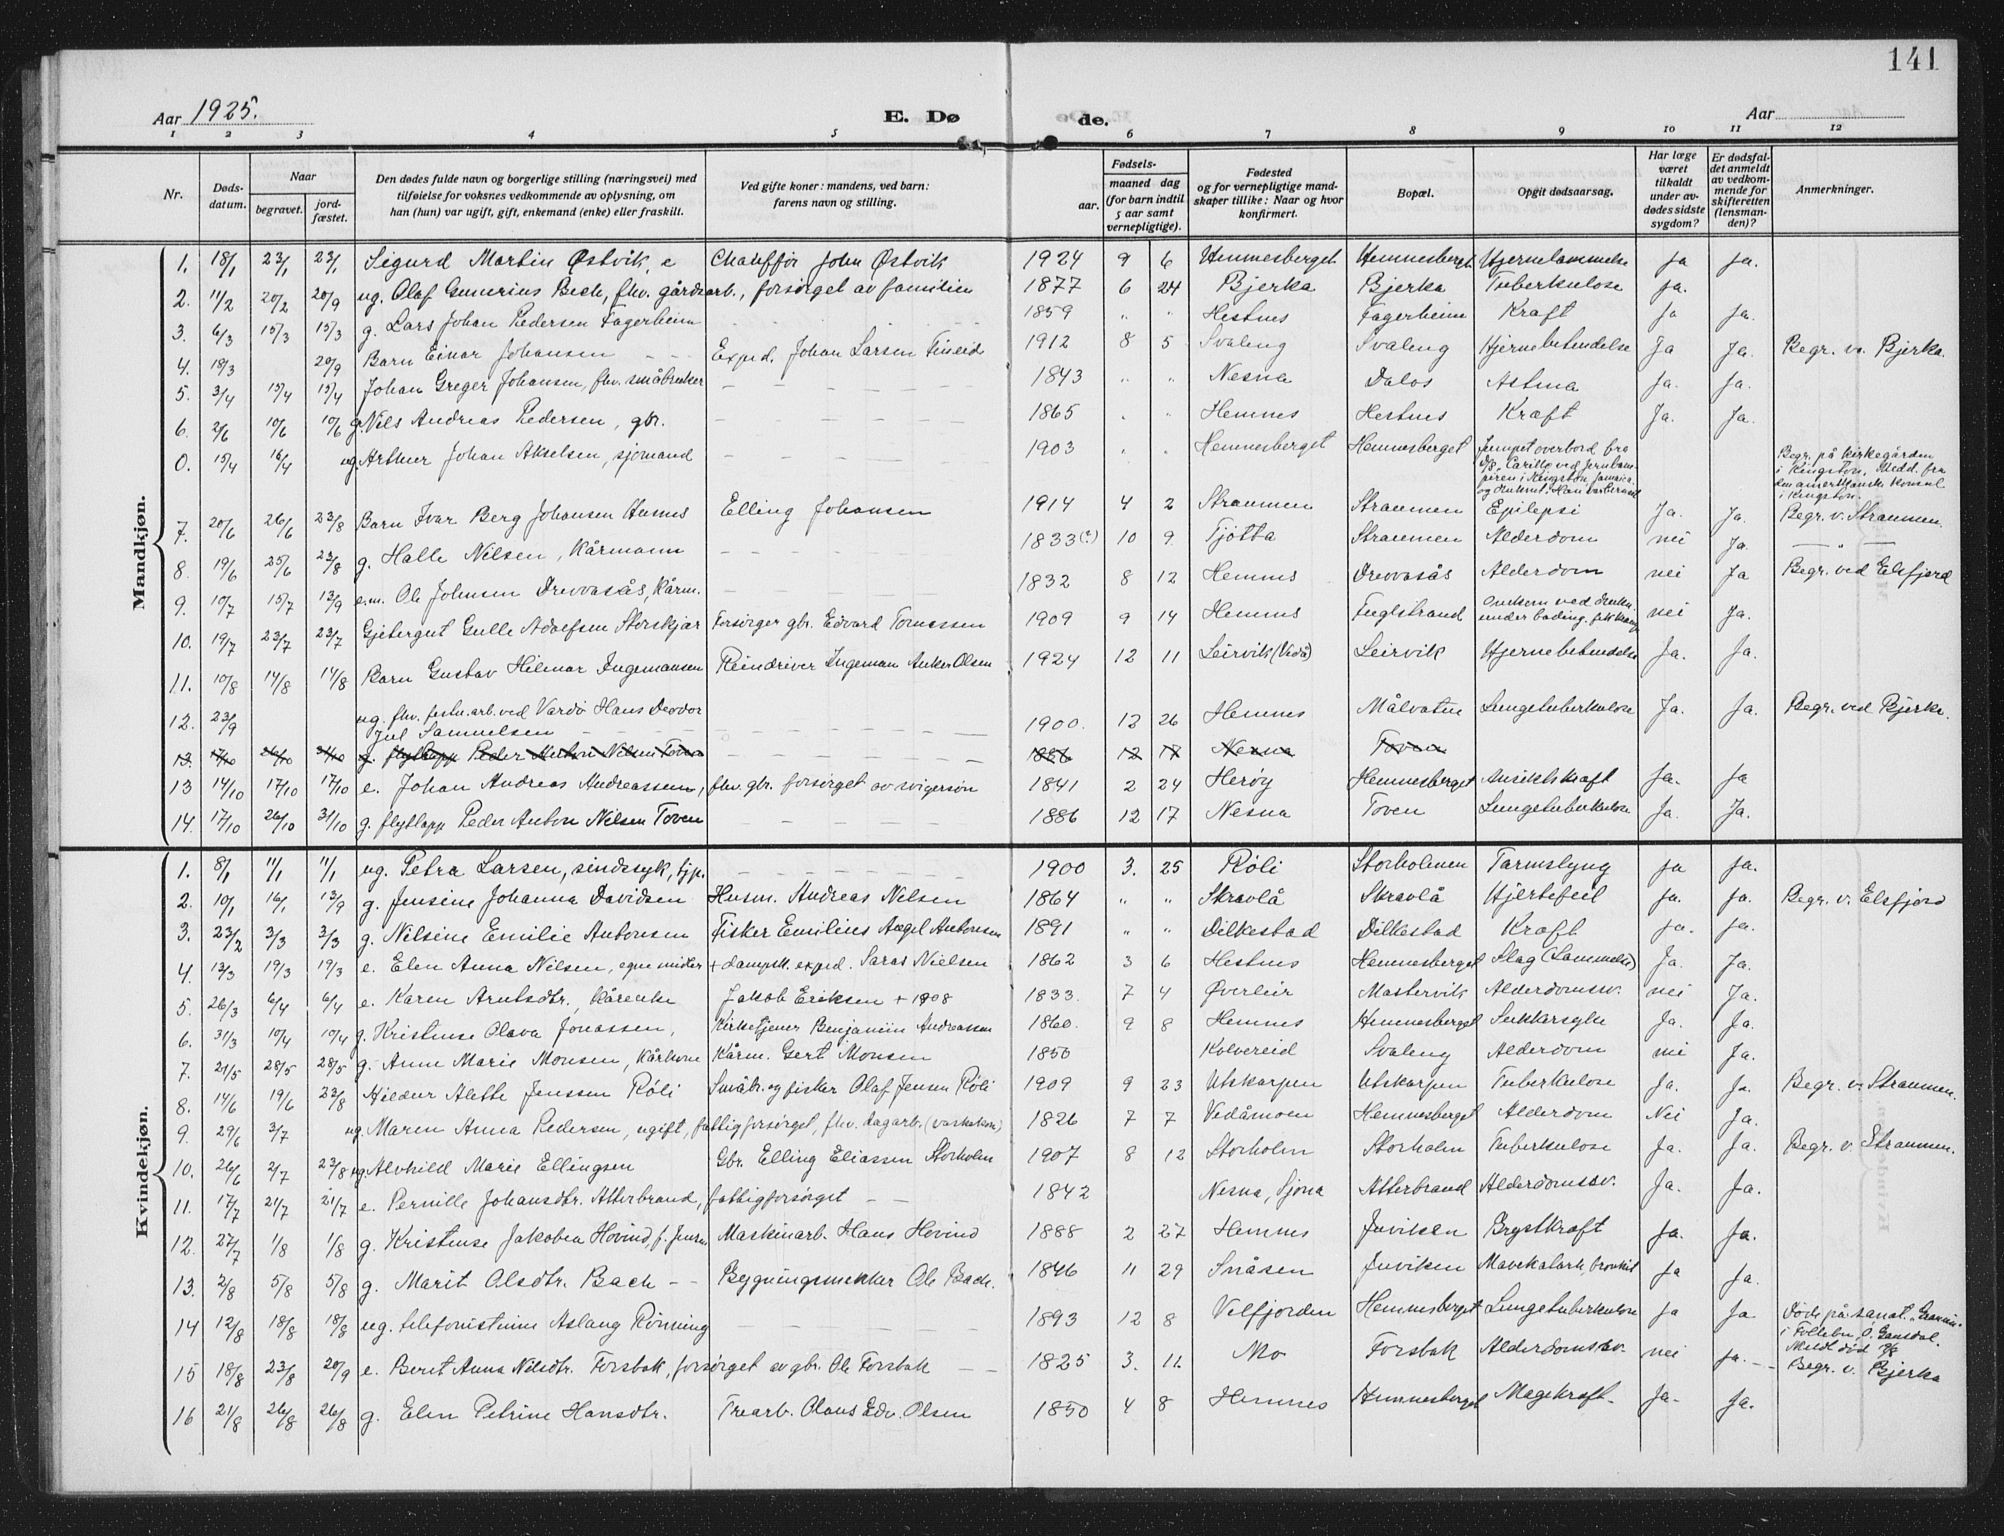 141
Aar 1925. E. Dø de. Aar
1 2 3 4 5 6 7 8 9 10 11 12
Nr. Døds-datum. Naar begravet. jord-fæstet. Den dødes fulde navn og borgerlige stilling (næringsvei) med tilføielse for voksnes vedkommende av oplysning, om han (hun) var ugift, gift, enkemand (enke) eller fraskilt. Ved gifte koner: mandens, ved barn: farens navn og stilling. Fødsels- aar. maaned dag (for barn indtil 5 aar samt vernepligtige). Fødested og for vernepligtige mandskaper tillike: Naar og hvor konfirmert. Bopæl. Opgit dødsaarsag. Har læge været tilkaldt under avdødes sidste sygdom? Er dødsfaldet anmeldt av vedkommende for skifteretten (lensmanden)? Anmerkninger.
Mandkjøn.
1. 18/1 23/1 23/1 Sigurd Martin Østvik, e Chauffør John Østvik 1924 9 6 Hemnesberget Hemnesberget Hjernelammelse ja ja.
2. 11/2 20/2 20/9 ug. Olaf Gunerius Bech, fhv. gårdsarb., forsørget av familien 1877 6 24 Bjerka Bjerka Tuberkulose ja.
3. 6/3 15/3 15/3 g. Lars Johan Pedersen Fagerheim 1859 " " Hestnes Fagerheim Kræft ja ja.
4. 18/3 20/9 Barn Einar Johansen Exped. Johan Larsen Fineid 1912 8 5 Svaleng Svaleng Hjernebetendelse Ja Ja. Begr. v. Bjerka.
5. 3/4 15/4 15/4 Johan Greger Johansen, fhv. småbruker 1843 " " Nesna Dalos Astma Ja. Ja.
6. 2/6 10/6 10/6 g. Nils Andreas Pedersen, gbr. 1865 " " Hemnes Hestnes Kræft Ja. Ja.
0. 15/4 16/4 ug Arthur Johan Akselsen, sjømand 1903 " " Hemnesberget Hemnesberget Jumpet overbord fra D/S. ved i Kingston, Jamaica og druknet. Han var Begr. på kirkegården i Kingston, Medd. fra den amerikanske konsul i Kingston.
7. 20/6 26/6 23/8 Barn Ivar Berg Johansen Husnes Elling Johansen 1914 4 2 Straumen Straumen Epilepsi Ja. Ja. Begr. v. Straumen.
8. 19/6 25/6 23/8 g. Halle Nilsen, Kårmann 1833(?) 10 9 Tjøtta Straumen Alderdom nei Ja. — " —
9. 10/7 15/7 13/9 e.m. Ole Johnsen Drevvasås, Kårm. 1832 8 12 Hemnes Drevvasås Alderdom nei Ja Begr. ved Elsfjord
10. 19/7 23/7 23/7 Gjetergut Gulle Adolfsen Storskjær Forsørger gbr. Edvard Tomassen 1909 9 14 Hemnes Fuglstrand Omkom ved drukn. under bading. fik krampe nei ja.
11. 10/8 14/8 14/8 Barn Gustav Hilmar Ingemansen Reindriver Ingeman Anker Olsen 1924 12 11 Leirvik (Vedå) Leirvik Hjernebetendelse Ja. Ja.
12. 23/9 ug. fhv. festn.arb. ved Vardø Hans Deodor Jul Samuelsen 1900. 12 26 Hemnes Målvatn Lungetuberkulose Ja. Ja. Begr. ved Bjerka.
13. 17/10 26/10 31/10 g. flytlapp Peder Anton Nilsen Toven 1886 12 17 Nesna Toven
13 14/10 17/10 17/10 e. Johan Andreas Andreassen, fhv. gbr. forsørget av svigersøn 1841 2 24 Herøy Hemnesberget Ansiktskræft Ja. Ja
14. 17/10 26/10 31/10 g. flytlapp Peder Anton Nilsen Toven 1886 12 17 Nesna Toven Lungetuberkulose Ja. Ja.
Kvindekjøn.
1. 8/1 11/1 11/1 ug. Petra Larsen, sindssyk, tjp. 1900 3. 25 Røli Storholmen Tarmslyng ja ja.
2. 10/1 16/1 13/9 g. Jensine Johanna Davidsen Husm. Andreas Nilsen 1864 " " Skravlå Skravlå Hjertefeil ja. ja. Begr. v. Elsfjord
3. 23/2 3/3 3/3 g. Nilsine Emilie Antonsen Fisker Emilius Angel Antonsen 1891 " " Dilkestad Dilkestad Kræft ja. ja.
4. 13/3 19/3 19/3 e. Elen Anna Nilsen, egne midler + dampsk. exped. Saras Nielsen 1862 3 6 Hestnes Hemnesberget Slag (Lammelse) Ja. Ja.
5. 26/3 6/4 6/4 e. Karen Arntsdtr. kårenke Jakob Eriksen + 1908 1833. 7 4 Øverleir Mastervik Alderdomssv. nei Ja.
6. 31/3 10/4 10/4 g. Kristense Olava Jonassen, Kirketjener Benjamin Andreassen 1860. 9 8 Hemnes Hemnesberget Sukkersyke Ja. Ja.
7. 21/5 28/5 28/5 g. Anne Marie Monsen, Kårkone Kårm. Gert Monsen 1850 Kolvereid Svaleng Alderdom nei Ja.
8. 14/6 19/6 23/8 Hildur Alette Jenssen Røli Småbr. og fisker Olaf Jenssen Røli 1909 9 23 Utskarpen Utskarpen Tuberkulose Ja. Ja. Begr. v. Straumen.
9. 29/6 3/7 ug. Maren Anna Pedersen, ugift, fattigforsørget, fhv. dagarb. (vaskekone) 1826 7 7 Vedåmoen Hemnesberget Alderdom Nei Ja.
10. 26/6 2/7 23/8 ug. Alvhild Marie Ellingsen Gbr. Elling Eliassen Storholm 1907 8 12 Storholm Storholm Tuberkulose Ja. Ja. Begr. v. Straumen.
11. 17/7 21/7 21/7 e. Pernille Johansdtr. Atterbrand, fattigforsørget — — 1842 Nesna, Sjona Atterbrand Alderdomssv. Ja. Ja.
12. 27/7 1/8 1/8 g. Kristense Jakobea Hovind, f. Jensen Maskinarb. Hans Hovind 1888 2 27 Hemnes Juviken Brystkræft Ja. Ja.
13. 2/8 5/8 5/8 g. Marit Olsdtr. Bach — — Bygningssnekker Ole Bach. 1846 11 29 Snåsen Juviken Mavekatarh, bronkit Ja Ja.
14 12/8 18/8 18/8 ug. telefonistinne Aslaug Rønning 1893 12 8 Velfjorden Hemnesberget Lungetuberkulose ja Ja Døde på sanat. i Follebu, Ø. Gausdal. Meldt død
15 18/8 23/8 20/9 e. Beret Anna Nilsdtr. Forsbak, forsørget av gbr. Ole Forsbak — — 1825 3. 11. Mo Forsbak Alderdomssv. nei ja. — — Begr. v. Bjerka
16 21/8 26/8 26/8 g. Elen Petrine Hansdtr. Trearb. Olaus Edv. Olsen 1850 4 8 Hemnes Hemnesberget Magekræft. Ja. Ja.